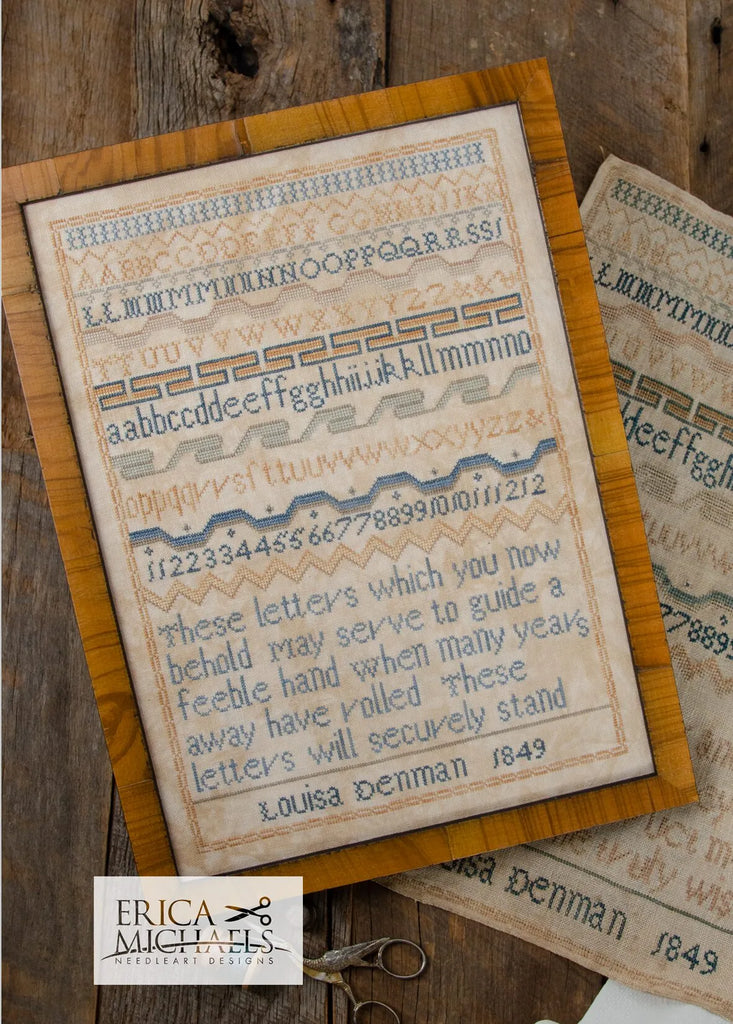 AABBCCDDEEFFGGHHIIJJKK
LLMMMMNNNNOOPPQQRRSS
TTUUVVWWXXYYZZ&&
aabbccddeeffgghhiijjkkllmmnno
oppqqrrsfttuuvvwwxxyyzz&
112233445566778899101011111212
These letters which you now
behold May serve to guide a
feeble hand when many years
away have rolled These
letters will securely stand
Louisa Denman 1849
truly wis
Denman 1849
ERICA
MICHAELS
NEEDLEART DESIGNS